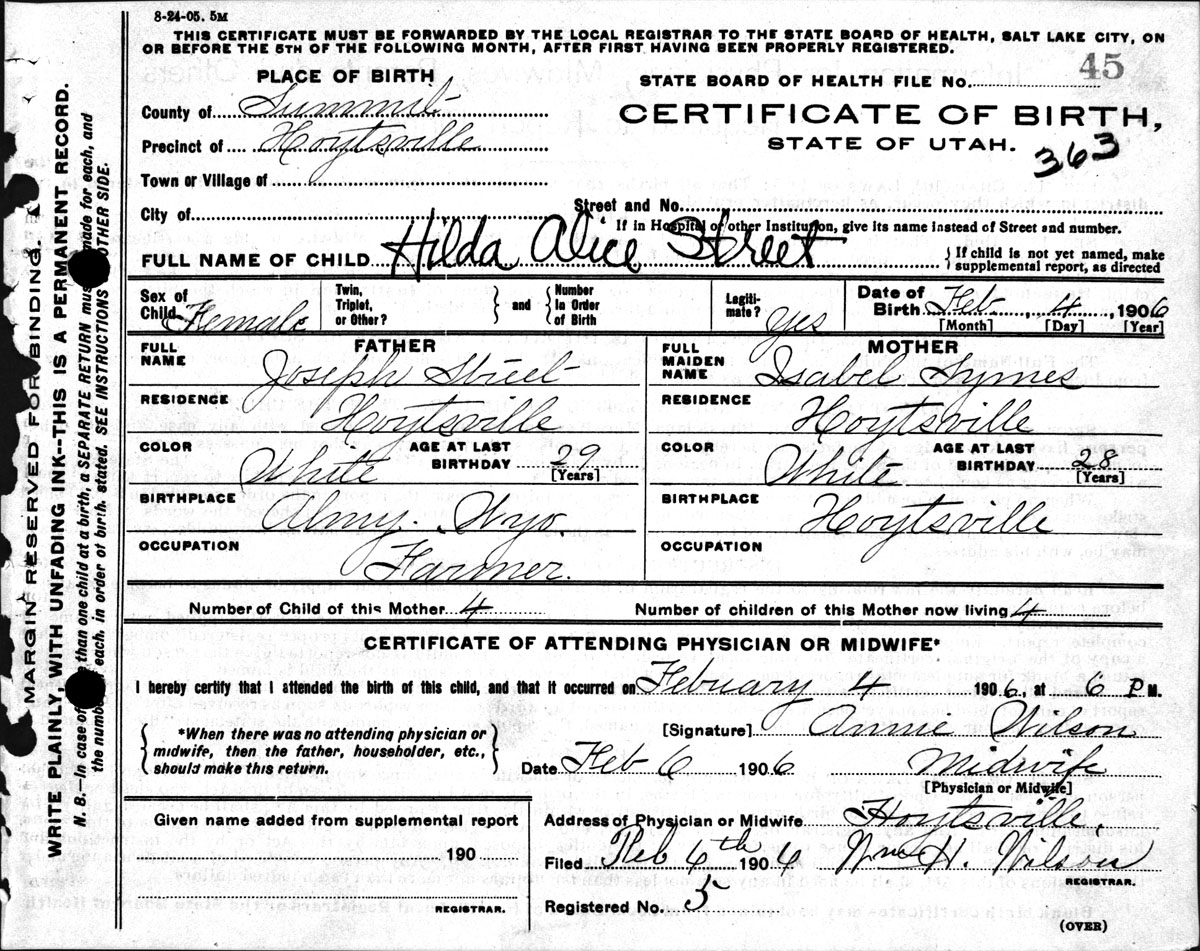 8-24-05. 5M
THIS CERTIFICATE MUST BE FORWARDED BY THE LOCAL REGISTRAR TO THE STATE BOARD OF HEALTH, SALT LAKE CITY, ON
OR BEFORE THE 5TH OF THE FOLLOWING MONTH, AFTER FIRST HAVING BEEN PROPERLY REGISTERED.
PLACE OF BIRTH
County of Summit
Precinct of Hoytsville
Town or Village of
City of
STATE BOARD OF HEALTH FILE No. 45
CERTIFICATE OF BIRTH,
STATE OF UTAH.
363
Street and No.
If in Hospital or other Institution, give its name instead of Street and number.
FULL NAME OF CHILD Hilda Alice Street
{ If child is not yet named, make
supplemental report, as directed
Sex of Child Female
Twin, Triplet, or Other? } and { Number in Order of Birth
Legiti-mate? yes
Date of Birth Feb 4, 1906
[Month] [Day] [Year]
FATHER
FULL NAME Joseph Street
RESIDENCE Hoytsville
COLOR White AGE AT LAST BIRTHDAY 29 [Years]
BIRTHPLACE Almy. Wyo.
OCCUPATION Farmer.
MOTHER
FULL MAIDEN NAME Isabel Symes
RESIDENCE Hoytsville
COLOR White AGE AT LAST BIRTHDAY 28 [Years]
BIRTHPLACE Hoytsville
OCCUPATION
Number of Child of this Mother 4 Number of children of this Mother now living 4
CERTIFICATE OF ATTENDING PHYSICIAN OR MIDWIFE*
I hereby certify that I attended the birth of this child, and that it occurred on Febuary 4 1906, at 6 P M.
{ *When there was no attending physician or
midwife, then the father, householder, etc.,
should make this return. }
[Signature] Annie Wilson
Date Feb 6 1906 Midwife
[Physician or Midwife]
Given name added from supplemental report
190
REGISTRAR.
Address of Physician or Midwife Hoytsville,
Filed Feb 6th 1906 Wm H. Wilson
REGISTRAR.
Registered No. 5
(OVER)
MARGIN RESERVED FOR BINDING.
WRITE PLAINLY, WITH UNFADING INK--THIS IS A PERMANENT RECORD.
N. B.—In case of than one child at a birth, a SEPARATE RETURN must made for each, and
the number each, in order of birth, stated. SEE INSTRUCTIONS OTHER SIDE.